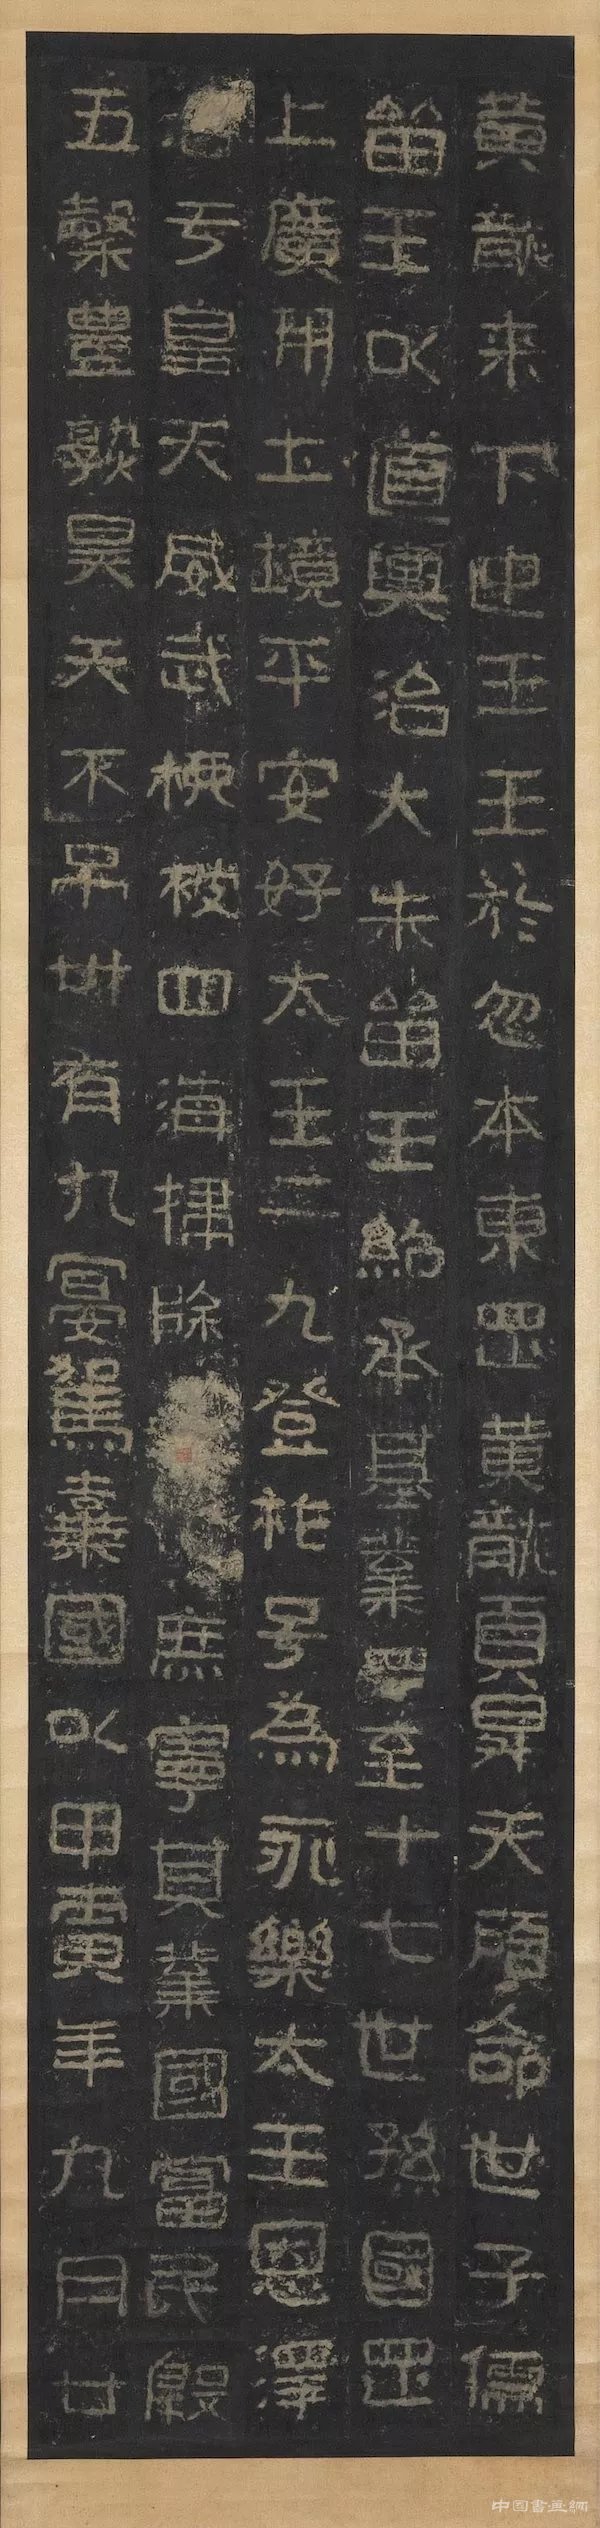 黃龍来下迎王王於忽本東罡黃龍頁昇天顧命世子儒
留王以道興治大朱留王紹承基業至十七世孫國罡
上廣開土境平安好太王二九登祚号為永樂太王恩澤
于皇天威武振被四海掃除庶寧其業國富民殷
五穀豊熟昊天不弔卅有九宴駕棄國以甲寅年九月廿
中國書畫網